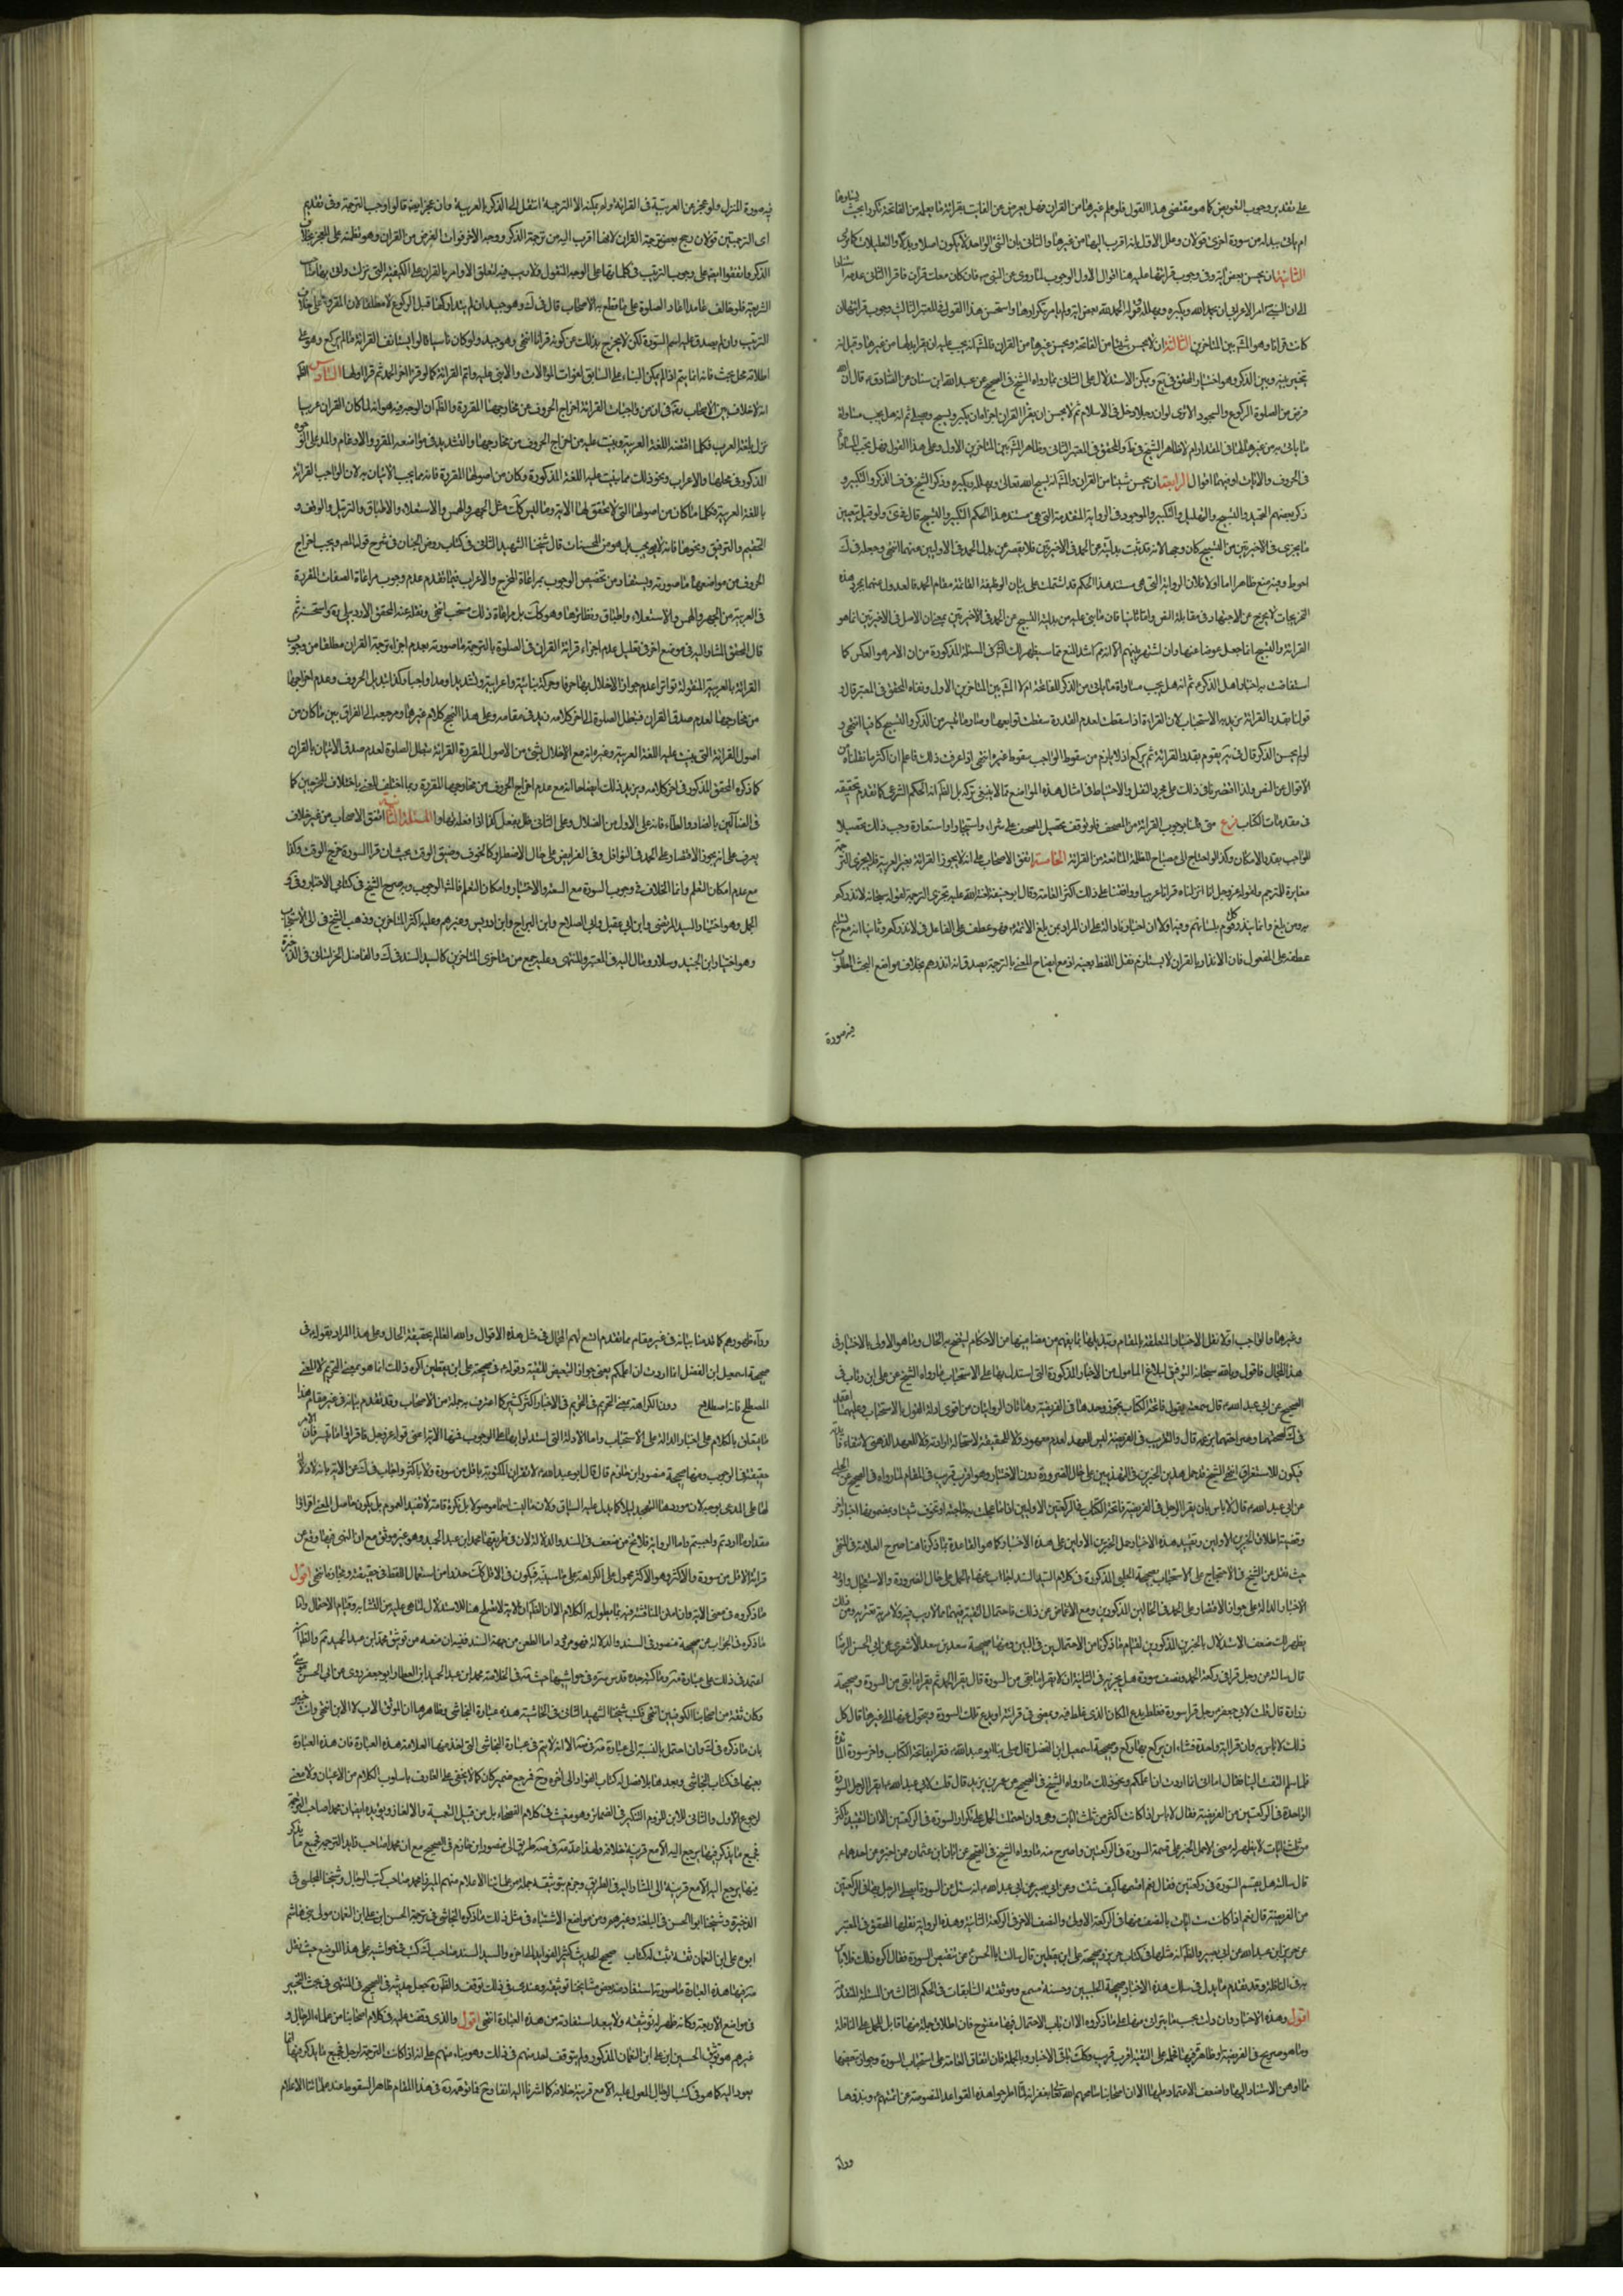 على تقدير وجوب التعويض كما هو مقتضى هذا القول فلو علم غيرها من القران فهل يعوض عن الفايت بقرائة ما يعلم من الفاتحة مكررا بحيث يساويها
ام ياتي ببدله من سورة اخرى قولان وعلل الاول بانه اقرب اليها من غيرها والثاني بان الشئ الواحد لا يكون اصلا وبدلا والتعليلات كما ترى
الثانية ان يحسن بعض اية وفي وجوب قرائتها عليه هنا اقوال الاول الوجوب لما روى عن النبي ص فان كان معك قران فاقرا الثاني عدمه
الى ان النبي ص امر الاعرابي ان يحمد الله ويكبره ويهلله وقوله الحمد لله بعض اية ولم يامر بتكرارها واستحسن هذا القول في المعتبر الثالث وجوب قرائتها ان
كانت قرانا وهو المشهور بين المتاخرين الثالثة ان لا يحسن شيئا من الفاتحة ويحسن غيرها من القران فالمشهور انه يجب عليه ان يقرا بدلها من غيرها وقيل انه
تخير بينه وبين الذكر وهو اختيار المحقق في يع ويمكن الاستدلال على الثاني بما رواه الشيخ في الصحيح عن عبد الله ابن سنان عن الصادق ع قال ان الله
فرض من الصلوة الركوع والسجود الا ترى لو ان رجلا دخل في الاسلام ثم لا يحسن ان يقرا القران اجزاه ان يكبر ويسبح ويصلي ثم انه هل يجب مساواة
ما ياتي به من غيرها لها في المقدار ام لا ظاهر الشيخ في ط والمحقق في المعتبر الثاني وظاهر المشهور بين المتاخرين الاول وعلى هذا القول فهل يجب المساواة
في الحروف والايات او فيهما اقوال الرابعة ان لا يحسن شيئا من القران والمشهور انه يسبح الله تعالى ويهلله ويكبره وذكر الشيخ في ف الذكر والتكبير و
ذكر بعضهم التحميد والتسبيح والتهليل والتكبير والموجود في الرواية المتقدمة التي هي مستند هذا الحكم التكبير والتسبيح قال في ى ولو قيل بتعيين
ما يجزي في الاخيرتين من التسبيح كان وجها لانه قد ثبت بدليته عن الحمد في الاخيرتين فلا يقصر عن بدل الحمد في الاوليين منهما انتهى وجعله في ك
احوط وفيه منع ظاهر اما اولا فلان الرواية التي هي مستند هذا الحكم قد اشتملت على بيان الوظيفة الفائتة مقام الحمد فالعدول عنها بمجرد هذه
التخريجات لا يخرج عن الاجتهاد في مقابلة النص واما ثانيا فان ما بنى عليه من بدلية التسبيح عن الحمد في الاخيرتين بمعنى ان الاصل في الاخيرتين انما هو
القرائة والتسبيح انما جعل عوضا عنها وان اشتهر بينهم الا انه ثم اشد المنع
استفاضت به اخبار اهل الذكر ع ثم انه هل يجب مساواة ما ياتي من الذكر للفاتحة ام لا المشهور بين المتاخرين الاول ونفاه المحقق في المعتبر قال و
قولنا بقدر القرائة نريد به الاستحباب لان القراءة اذا سقطت لعدم القدرة سقطت توابعها وصار ما تيسر من الذكر والتسبيح كافيا انتهى و
لو لم يحسن الذكر قال في ية يقوم بقدر القرائة ثم يركع اذ لا يلزم من سقوط الواجب سقوط غيره انتهى اذا عرفت ذلك فاعلم ان اكثر ما نقلناه من
الاقوال عن النص ولذا اقتصرنا في ذلك على مجرد النقل والاحتياط في امثال هذه المواضع مما لا ينبغي تركه بل الظاهر انه الحكم الشرعي كما تقدم تحقيقه
في مقدمات الكتاب فرع متى قلنا بوجوب القرائة من المصحف فلو توقف تحصيل المصحف على شراء او استيجار او استعارة وجب ذلك تحصيلا
للواجب بقدر الامكان وكذا لو احتاج الى مصباح للظلمة المانعة من القرائة الخامسة اتفق الاصحاب على انه لا يجوز القرائة بغير العربية فلا يجزي الترجمة
مغايرة للمترجم ولقوله عز وجل انا انزلناه قرانا عربيا ووافقنا على ذلك اكثر العامة وقال ابو حنيفة لعنة الله عليه تجزي الترجمة لقوله سبحانه لانذركم
به ومن بلغ وانما ينذر كل قوم بلسانهم
عطفه على المفعول فان الانذار بالقران لا يستلزم نقل اللفظ بعينه اذ مع ايضاح المعنى بالترجمة يصدق انه انذرهم بخلاف مواضع البحث المطلوب
فيه صورة
فيه صورة المنزل ولو عجز عن العربية في القرائة ولم يمكنه الا الترجمة انتقل الى الذكر بالعربية وان عجز ايضا قالوا وجب الترجمة وفي تقديم
اى الترجمتين قولان رجح بعض ترجمة القران لانها اقرب اليه من ترجمة الذكر ووجه الاخر فوات الغرض من القران وهو نظمه على المعجز بخلاف
الذكر واتفقوا ايضا على وجوب الترتيب في كلماتها واياتها على الوجه المنقول ولا ريب فيه لتعلق الاوامر بالقران على الكيفية التي نزلت
الشريعة فلو خالف عامدا اعاد الصلوة على ما قطع به الاصحاب قال في ك وهو جيد ان لم يتداركها قبل الركوع لا مطلقا لان المقرو على خلاف
الترتيب وان لم يصدق عليه اسم السورة لكن لا يخرج بذلك عن كونه قرانا انتهى وهو جيد ولو كان ناسيا قالوا يستانف القرائة ما لم يركع وهو على
اطلاقه محل بحث فانه انما يتم اذا لم يمكن البناء على السابق لفوات الموالاة والا بنى عليه واتم القرائة كما لو قرا اخر الحمد ثم قرا اولها السادس الظاهر
انه لا خلاف بين الاصحاب رض في ان من واجبات القرائة اخراج الحروف من مخارجها المقررة والظاهر ان الوجه فيه هو انه لما كان القران عربيا
نزل بلغة العرب فكلما اقتضته اللغة العربية وبنيت عليه من اخراج الحروف من مخارجها والتشديد في مواضعه المقررة والادغام والمد على الوجه
المذكور في محلها والاعراب ونحو ذلك مما بنيت عليه اللغة المذكورة وكان من اصولها المقررة فانه مما يجب الاتيان به لان الواجب القرائة
باللغة العربية فكلما كان من اصولها التي لا تتحقق لها الا به وما ليس كك مثل الجهر والهمس والاستعلاء والاطباق والترتيل والوقف و
التفخيم والترقيق ونحوها فانه لا يجب بل هو من المحسنات قال شيخنا الشهيد الثاني في كتاب روض الجنان في شرح قول المصنف ويجب اخراج
الحروف من مواضعها ما صورته ويستفاد من تخصيص الوجوب بمراعاة المخرج والاعراب فيما تقدم عدم وجوب مراعاة الصفات المقررة
في العربية من الجهر والهمس والاستعلاء والاطباق ونظائرها وهو كك بل مراعاة ذلك مستحب انتهى ونقله عنه المحقق الاردبيلي ره واستحسنه ثم
قال المحقق المشار اليه في موضع اخر في تعليل عدم اجزاء قرائة القران في الصلوة بالترجمة ما صورته بعدم اجزاء ترجمة القران مطلقا من وجوب
القرائة بالعربية المنقولة تواترا عدم جواز الاخلال بها حرفا وحركة بنائية واعرابية وتشديد ومد واجبا وكذا تبديل الحروف وعدم اخراجها
من مخارجها لعدم صدق القران فتبطل الصلوة الى اخر كلامه زيد في مقامه
اصول القرائة التي بنيت عليه اللغة العربية وغيره انه مع الاخلال بشئ من الاصول المقررة القرائة تبطل الصلوة لعدم صدق الاتيان بالقران
كما ذكره المحقق المذكور في اخر كلامه ويزيد ذلك ايضاحا انه مع عدم اخراج الحروف من مخارجها المقررة ربما اختلف المعنى باختلاف المخرجين كما
في الضالين بالضاد والظاء فانه على الاول من الضلال وعلى الثاني ظل يفعل كذا اذا فعله نهارا المسئلة الثانية اتفق الاصحاب من غير خلاف
يعرف على انه يجوز الاقتصار على الحمد في النوافل وفي الفرايض على حال الاضطرار كالخوف وضيق الوقت بحيث ان قرا السورة خرج الوقت وكذا
مع عدم امكان التعلم وانما الخلاف في وجوب السورة مع السعة والاختيار وامكان التعلم فالمشهور الوجوب وبه صرح الشيخ في كتابي الاخبار وف و
الجمل وهو اختيار السيد المرتضى وابن ابي عقيل وابي الصلاح وابن البراج وابن ادريس وغيرهم وعليه اكثر المتاخرين وذهب الشيخ في ية الى الاستحباب
وهو اختيار ابن الجنيد وسلار ومال اليه في المعتبر والمنتهى وعليه جمع من متاخري المتاخرين كالسيد السند في ك والفاضل الخراساني في الذخيرة
وغيرها والواجب اولا نقل الاخبار المتعلقة بالمقام وتذييلها بما يفهم من مضامينها من الاحكام ليتضح به الحال وما هو الاولى بالاختيار في
هذا المجال فاقول وبالله سبحانه التوفيق لبلوغ المامول من الاخبار المذكورة التي استدل بها على الاستحباب ما رواه الشيخ عن علي ابن رئاب في
الصحيح عن ابي عبد الله ع قال سمعته يقول فاتحة الكتاب تجزي وحدها في الفريضة وهاتان الروايتان من اقوى ادلة القول بالاستحباب
فيكون للاستغراق انتهى الشيخ قد حمل هذين الخبرين في التهذيبين على حال الضرورة دون الاختيار وهو اقرب قريب في المقام لما رواه في الصحيح عن الحلبي
عن ابي عبد الله ع قال لا باس بان يقرا الرجل في الفريضة فاتحة الكتاب في الركعتين الاوليين اذا ما اعجلت به حاجة او تخوف شيئا
وقضية اطلاق الخبرين الاولين وتقييد هذه الاخبار حمل الخبرين الاولين على هذه الاخبار كما هو القاعدة وبما ذكرنا هنا صرح العلامة في المنتهى
حيث نقل عن الشيخ في الاحتجاج على الاستحباب بصحيحة الحلبي المذكورة
الاخبار الدالة على جواز الاقتصار على الحمد في الحالين المذكورين ومع الاغماض عن ذلك فاحتمال التقية فيهما مما لا ريب فيه
يظهر لك ضعف الاستدلال بالخبرين المذكورين لقيام ما ذكرنا من الاحتمالين في البين ومنها صحيحة سعد بن سعد الاشعري عن ابي الحسن الرضا
قال سالته عن رجل قرا في ركعة الحمد ونصف سورة هل يجزيه في الثانية ان لا يقرا الحمد ويقرا ما بقى من السورة قال يقرا الحمد ثم يقرا ما بقى من السورة وصحيحة
زرارة قال قلت لابي جعفر ع رجل قرا سورة فغلط ايدع المكان الذي غلط فيه ويمضي في قرائته او يدع تلك السورة ويتحول عنها الى غيرها قال كل
ذلك لا باس به وان قرا اية واحدة فشاء ان يركع بها ركع وصحيحة اسمعيل ابن الفضل قال صلى بنا ابو عبد الله ع فقرا بفاتحة الكتاب واخر سورة المائدة
فلما سلم التفت الينا فقال اما اني انما اردت ان اعلمكم ونحو ذلك ما رواه الشيخ في الصحيح عن عمر بن يزيد قال قلت لابي عبد الله ع ايقرا الرجل السورة
الواحدة في الركعتين من الفريضة فقال لا باس اذا كانت اكثر من ثلث ايات وهي وان احتملت الحمل على تكرار السورة في الركعتين الا ان التقييد باكثر
من ثلث ايات لا يظهر له معنى الا حمل الخبر على قسمة السورة في الركعتين واصرح منه ما رواه الشيخ في الصحيح عن ابان ابن عثمان عمن اخبره عن احدهما ع
قال سالته هل يقسم السورة في ركعتين فقال نعم اقسمها كيف شئت وعن ابي بصير عن ابي عبد الله ع انه سئل عن السورة ايصلي الرجل بها في الركعتين
من الفريضة قال نعم اذا كانت ست ايات بالنصف منها في الركعة الاولى والنصف الاخر في الركعة الثانية وهذه الرواية نقلها المحقق في المعتبر
عن حريز ابن عبد الله عن ابي بصير والظاهر انه نقلها من كتاب حريز وصحيحة علي ابن يقطين قال سالت ابا الحسن ع عن تبعيض السورة فقال اكره ذلك ولا باس
به في النافلة وقد تقدم ما يدل في سلك هذه الاخبار
اقول وهذه الاخبار وان دلت بحسب ما يترائى منها على ما ذكروه الا ان باب الاحتمال فيها مفتوح فان اطلاق جملة منها قابل للحمل على النافلة
وما هو صريح في الفريضة او ظاهر فيها فحمله على التقية اقرب قريب وكك باقي الاخبار وبالجملة فان اتفاق العامة على استحباب السورة وجواز تبعيضها
مما اوهن الاستناد اليها واضعف الاعتماد عليها الا ان اصحابنا سامحهم الله تعالى بغفرانه لما اطرحوا هذه القواعد المنصوصة عن ائمتهم ونبذوها
وراء
وراء ظهورهم كما قدمنا بيانه في غير مقام مما تقدم اتسع لهم المجال في مثل هذه الاقوال والله العالم بحقيقة الحال وعلى هذا المراد بقوله ع في
صحيحة اسمعيل ابن الفضل انما اردت ان اعلمكم يعني جواز التبعيض للتقية وقوله ع في صحيحة علي ابن يقطين اكره ذلك انما هو بمعنى التحريم لا المعنى
المصطلح فانه اصطلاح دون الكراهة بمعنى التحريم في الاخبار اكثر كثير كما اعترف به جملة من الاصحاب وقد تقدم بيانه في غير مقام هذا
ما يتعلق بالكلام على اخبار الدالة على الاستحباب واما الادلة التي استدلوا بها على الوجوب فمنها الاية اعني قوله عز وجل فاقرءوا ما تيسر فان الامر
حقيقة في الوجوب ومنها صحيحة منصور ابن حازم قال قال ابو عبد الله ع لا تقرا في المكتوبة باقل من سورة ولا باكثر واجاب في ك عن الاية بانه لا دلالة
لها على المدعى بوجه لان موردها التهجد ليلا كما يدل عليه السياق ولان ما ليست اسما موصولا بل نكرة تامة لا تفيد العموم بل يكون حاصل المعنى اقرءوا
مقدار ما اردتم واحببتم واما الرواية فلا تخ من ضعف في السند والدلالة لان في طريقها محمد ابن عبد الحميد وهو غير موثق مع ان النهى فيها وقع عن
قرائة الاقل من سورة والاكثر وهو في الاكثر محمول على الكراهة على ما سنبينه فيكون في الاقل كك حذرا من استعمال اللفظ في حقيقته ومجازه انتهى اقول
ما ذكروه في معنى الاية وان امكن المناقشة فيه بما يطول به الكلام الا ان الظاهر ان الاية لا تصلح هنا للاستدلال لما هي عليه من التشابه وقيام الاحتمال واما
ما ذكره في الجواب عن صحيحة منصور في السند والدلالة فهو مردود اما الطعن من جهة السند ففيه ان منعه من توثيق محمد ابن عبد الحميد ثم والظاهر انه
اعتمد في ذلك على عبارة صه وما كتبه جده قدس سره في حواشيها حيث صه في الخلاصة محمد ابن عبد الحميد ابن العطار ابو جعفر روى عن ابي الحسن موسى
وكان ثقة من اصحابنا الكوفيين انتهى وكتب شيخنا الشهيد الثاني في الحاشية هذه عبارة النجاشي وظاهرها ان الموثق الاب لا الابن انتهى وانت خبير
بان ما ذكره في ك وان احتمل بالنسبة الى عبارة صه الا انه لا يتم في عبارة النجاشي التي اخذ منها العلامة هذه العبارة فان هذه العبارة
بعينها في كتاب النجاشي وبعدها بلا فصل له كتاب النوادر الى اخره وح فرجع ضمير كان كما لا يخفى على العارف باسلوب الكلام من الاعيان ولا معنى
لرجوع الاول والثاني للابن للزوم التفكيك في الضمائر وهو معيب في كلام الفصحاء بل من قبيل التعمية والالغاز ويؤيده ايضا ان محمدا صاحب الترجمة
فجميع ما يذكر فيها يرجع اليه الا مع قرينة خلافه ولهذا عد صه في صه طريق الى منصور ابن حازم في الصحيح مع ان محمدا صاحب
فيها يرجع اليه الا مع قرينة الى المشار اليه في الطريق وجزم بتوثيقه جملة من علمائنا الاعلام منهم الميرزا محمد صاحب كتب الرجال وشيخنا المجلسي في
الوجيزة وشيخنا ابو الحسن في البلغة وغيرهم ومن مواضع الاشتباه في مثل ذلك ما ذكره النجاشي في ترجمة الحسن ابن علي ابن النعمان مولى بني هاشم
ابوه علي ابن النعمان ثقة ثبت له كتاب صحيح الحديث كثير الفوائد الى اخره والسيد السند صاحب ك كتب في حواشيه على هذا الموضع حيث نقل
صه فيها هذه العبارة ما صورته استفاد منه بعض مشايخنا توثيقه وعندي في ذلك توقف والظاهر انه جعل حديثه في الصحيح في المنتهى في بحث التخيير
في مواضع الاربعة وكانه ظهر له توثيقه ولا يبعد استفادته من هذه العبارة انتهى اقول والذي وقفت عليه في كلام اصحابنا من علماء الرجال و
غيرهم هو توثيق الحسن ابن علي ابن النعمان المذكور ولم يتوقف احد منهم في ذلك وهو بناء منهم على انه اذا كانت الترجمة لرجل فجميع ما يذكر فيها انما
يعود اليه كما هو في كتب الرجال المعول عليه الا مع قرينة خلافه كما اشرنا اليه انفا وح فما توهمه ره في هذا المقام ظاهر السقوط عند علمائنا الاعلام